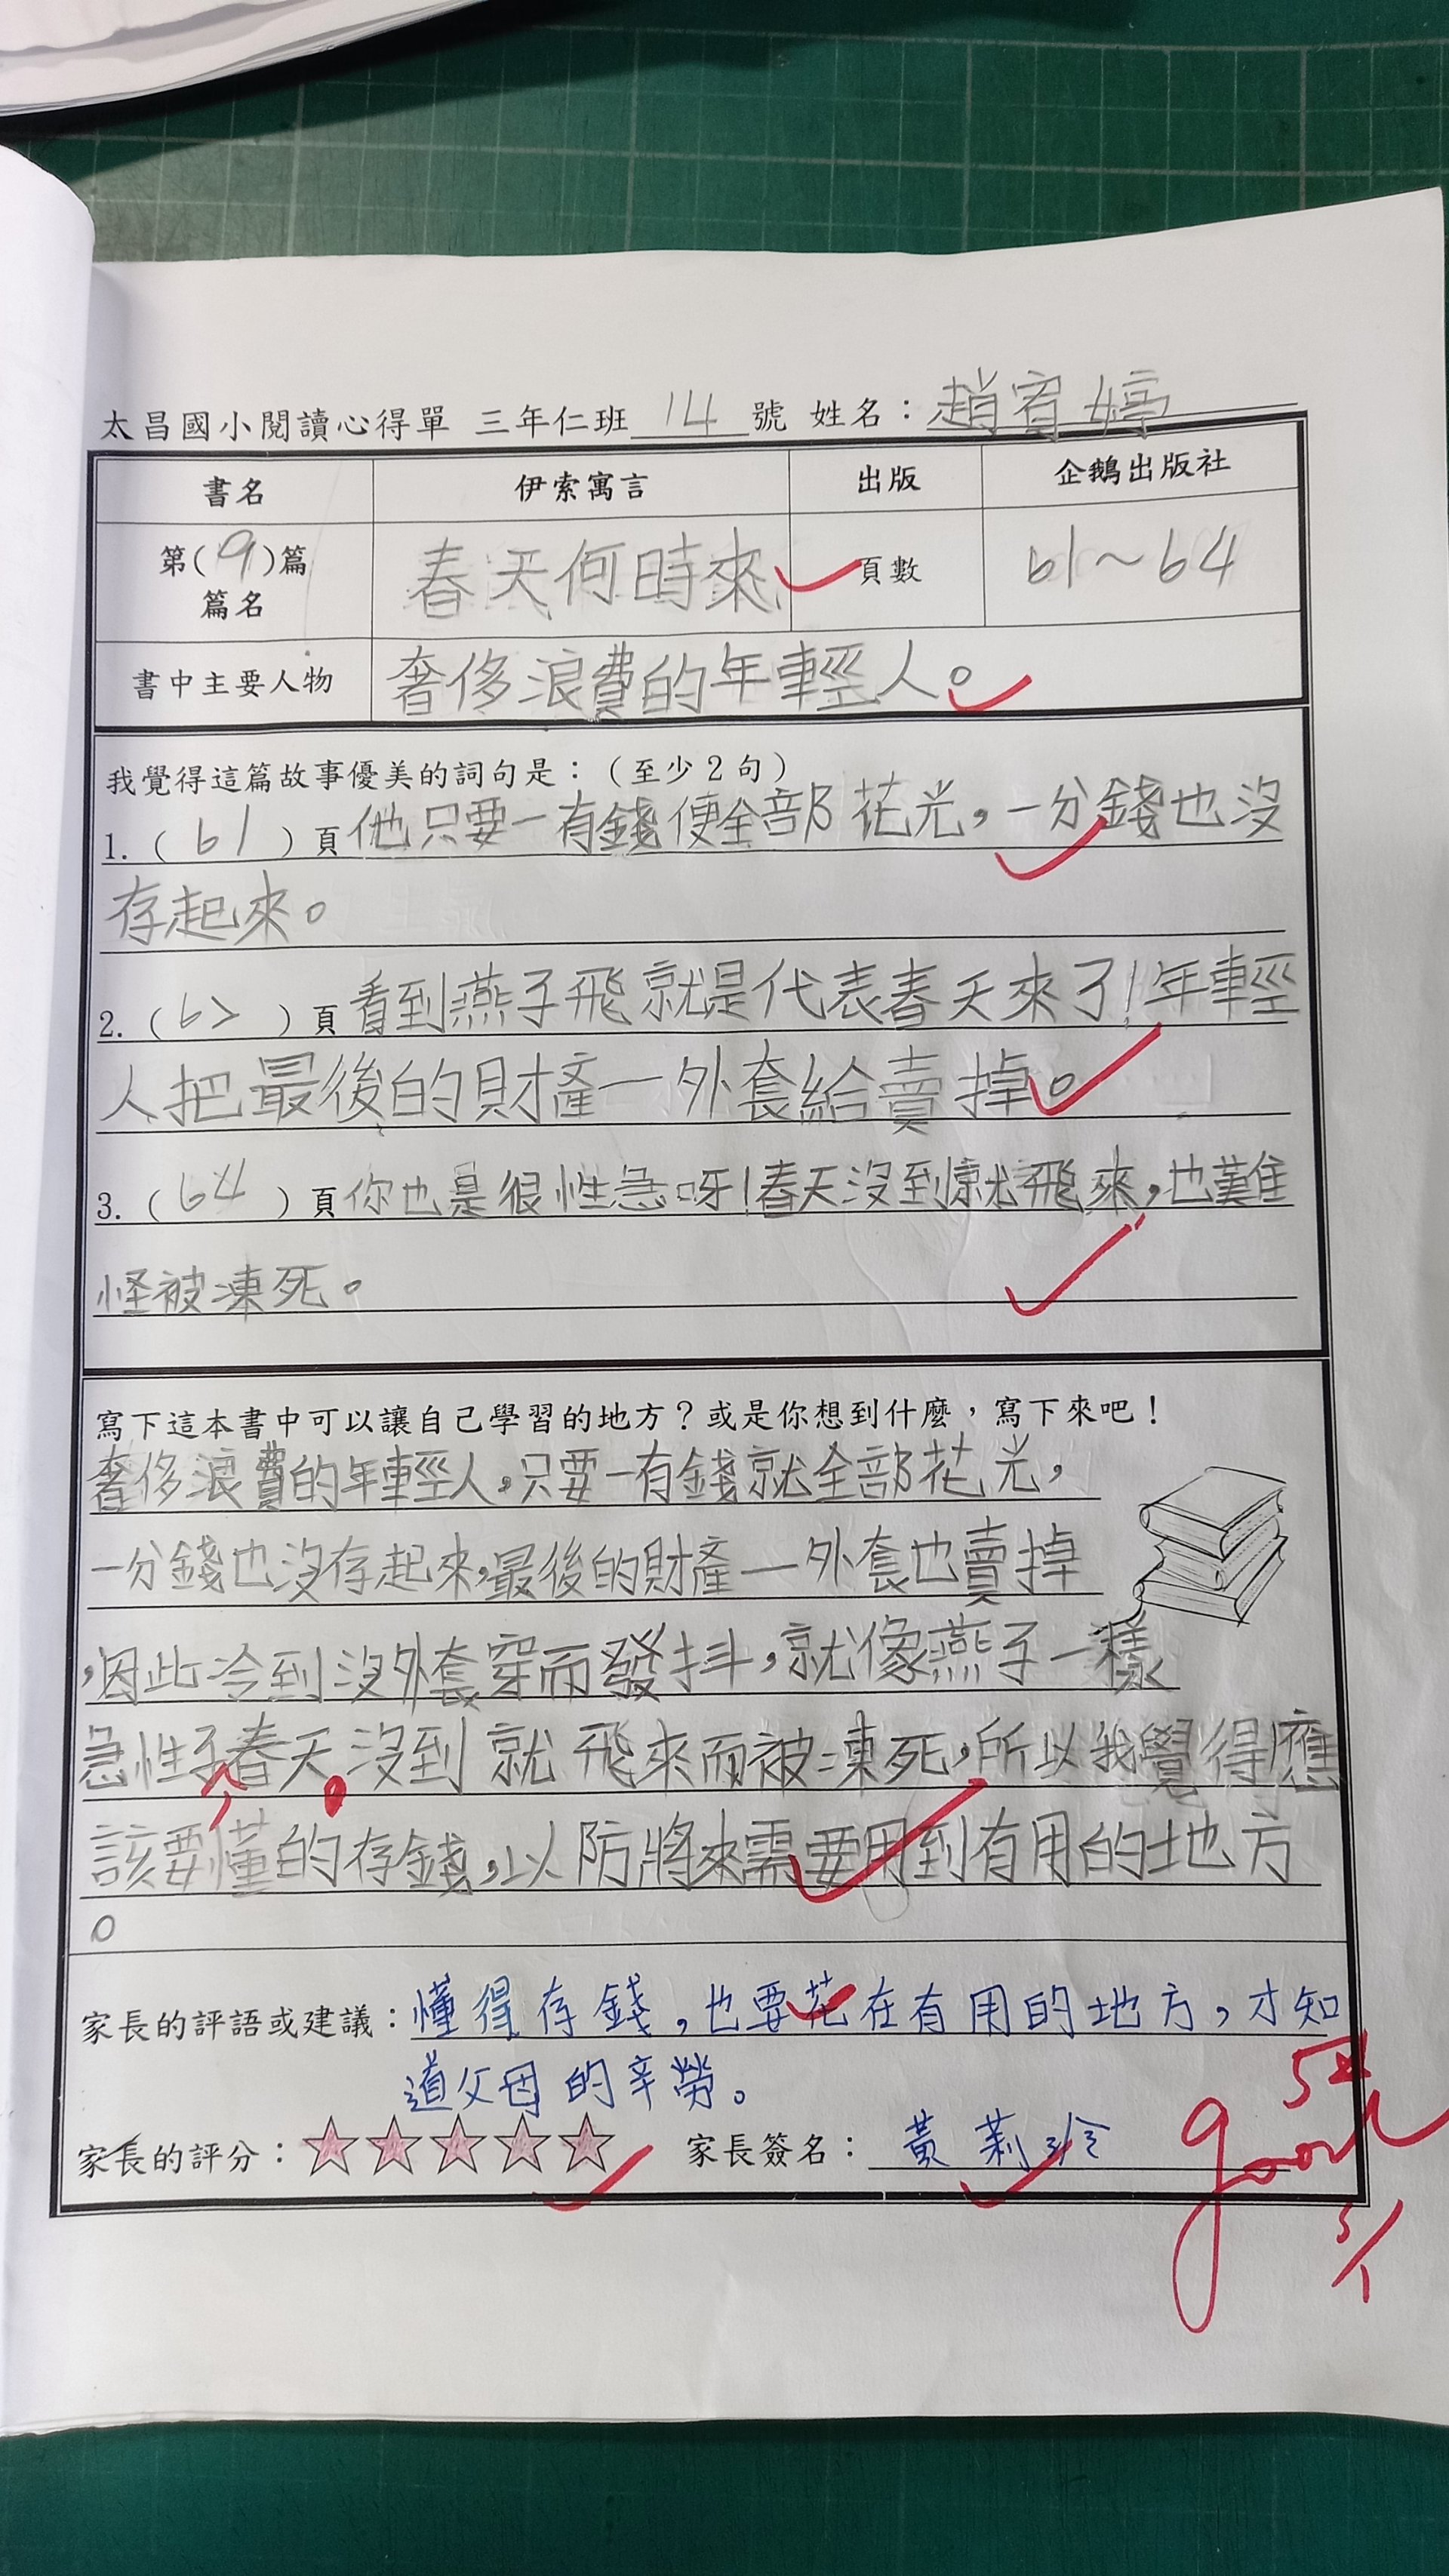 太昌國小閱讀心得單 三年仁班 14 號 姓名：趙宥婷
書名 伊索寓言 出版 企鵝出版社
第(9)篇 篇名 春天何時來 頁數 61～64
書中主要人物 奢侈浪費的年輕人。
我覺得這篇故事優美的詞句是：（至少2句）
1.（61）頁他只要一有錢便全部花光，一分錢也沒
存起來。
2.（62）頁看到燕子飛就是代表春天來了！年輕
人把最後的財產—外套給賣掉。
3.（64）頁你也是很性急呀！春天沒到就飛來，也難
怪被凍死。
寫下這本書中可以讓自己學習的地方？或是你想到什麼，寫下來吧！
奢侈浪費的年輕人，只要一有錢就全部花光，
一分錢也沒存起來，最後的財產—外套也賣掉
，因此冷到沒外套穿而發抖，就像燕子一樣
急性子春天沒到就飛來而被凍死，所以我覺得應
該要懂的存錢，以防將來需要用到有用的地方
。
家長的評語或建議：懂得存錢，也要花在有用的地方，才知
道父母的辛勞。
家長的評分：☆☆☆☆☆ 家長簽名：黃莉玲
good
5/1